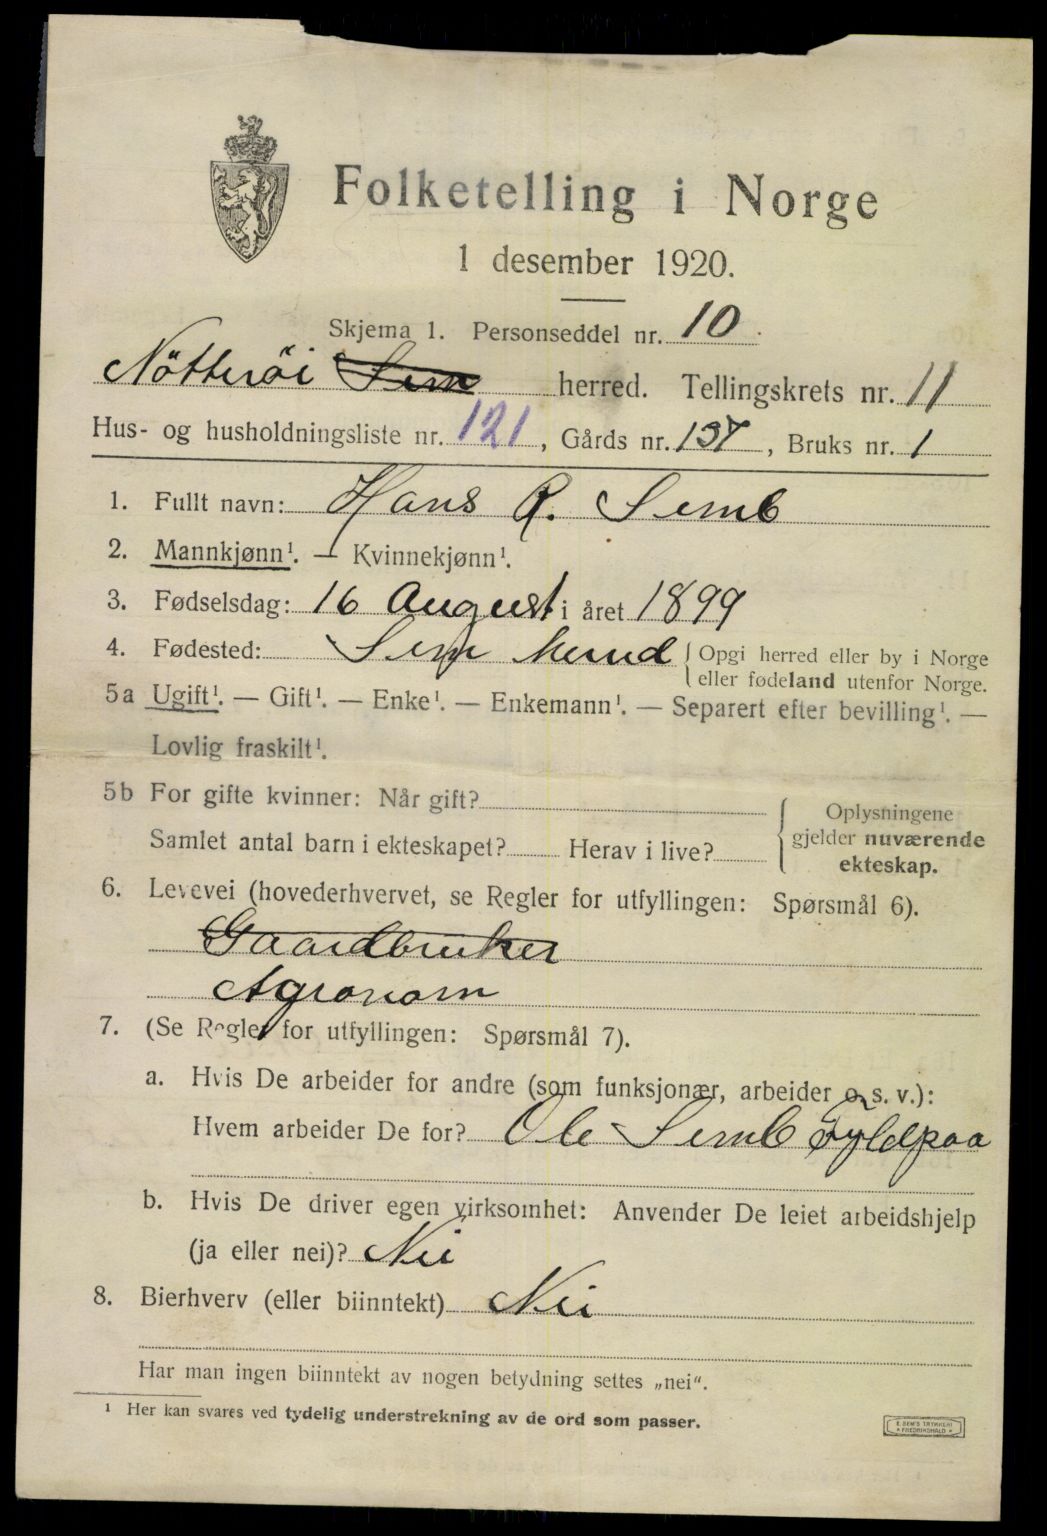 Folketelling i Norge
1 desember 1920.
Skjema 1. Personseddel nr. 10
Nötterøi Sem herred. Tellingskrets nr. 11
Hus- og husholdningsliste nr. 121, Gårds nr. 137, Bruks nr. 1
1. Fullt navn: Hans R. Semb
2. Mannkjønn¹. — Kvinnekjønn¹.
3. Fødselsdag: 16 August i året 1899
4. Fødested: Sem herred {Opgi herred eller by i Norge
eller fødeland utenfor Norge.
5a Ugift¹. — Gift¹. — Enke¹. — Enkemann¹. — Separert efter bevilling¹. —
Lovlig fraskilt¹.
5b For gifte kvinner: Når gift?
Samlet antal barn i ekteskapet? Herav i live?
Oplysningene
gjelder nuværende
ekteskap.
6. Levevei (hovederhvervet, se Regler for utfyllingen: Spørsmål 6).
Gaardbruker
Agronom
7. (Se Regler for utfyllingen: Spørsmål 7).
a. Hvis De arbeider for andre (som funksjonær, arbeider o. s. v.):
Hvem arbeider De for? Ole Semb Fyldpaa
b. Hvis De driver egen virksomhet: Anvender De leiet arbeidshjelp
(ja eller nei)? Nei
8. Bierhverv (eller biinntekt) Nei
Har man ingen biinntekt av nogen betydning settes „nei".
¹ Her kan svares ved tydelig understrekning av de ord som passer.
E. SEM'S TRYKKERI
FREDRIKSHALD